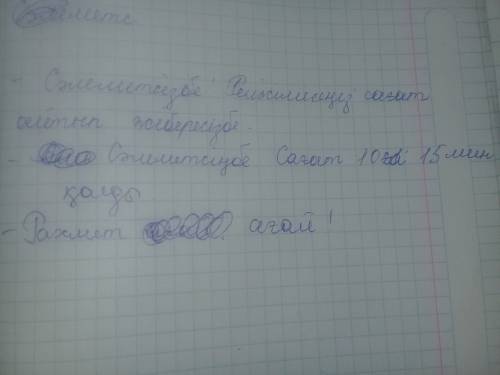 - Сәлеметсізбе! Реңжімесеңіз сағат
айтып жібересізбе.
- Сәлеметсізбе Сағат 10ға 15 мин
қалды
- Рахмет ағай!